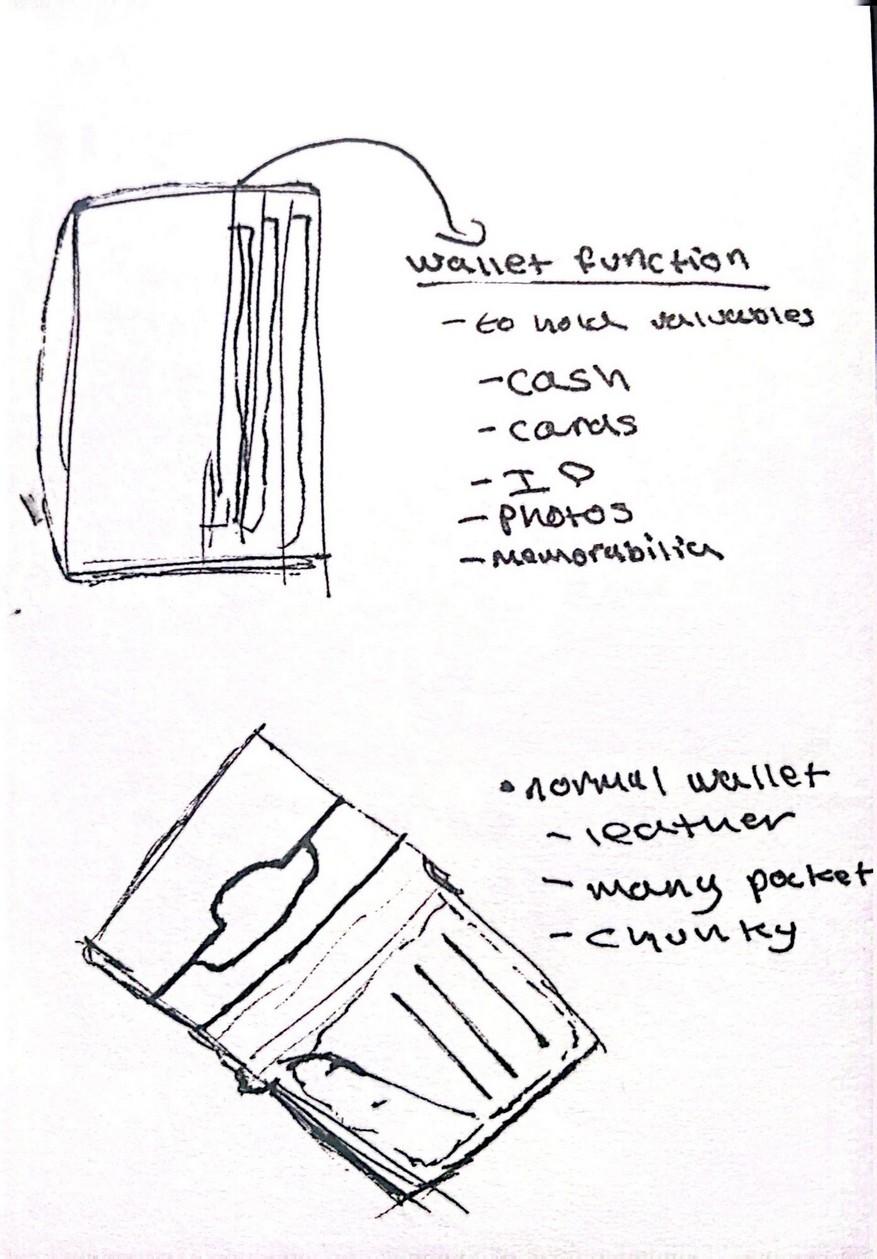 wallet function
- to hold valuables
- cash
- cards
- ID
- photos
- memorabilia
• normal wallet
- leather
- many pocket
- chunky